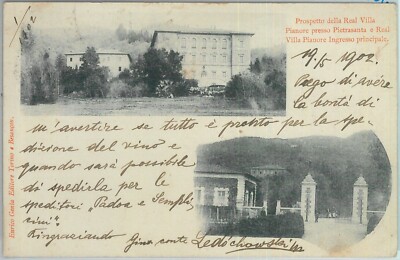 Prospetto della Real Villa
Pianore presso Pietrasanta e Real
Villa Pianore Ingresso principale.
19/5 1902.
Prego di avere
la bontà di
m'avertire se tutto è pronto per la spe-
dizione del vino e
quando sarà possibile
di spedirla per le
speditori "Padoa e Sempli-
cini".
Ringraziando Gina conte Ledóchowski
Editore Torino e